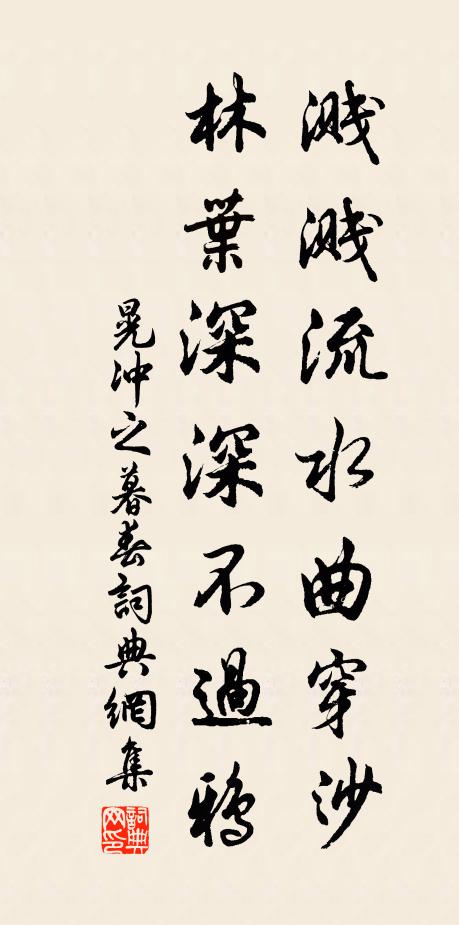 濺濺流水曲穿沙
林葉深深不過鴉
晁冲之暮春詞典網集
詞典网印